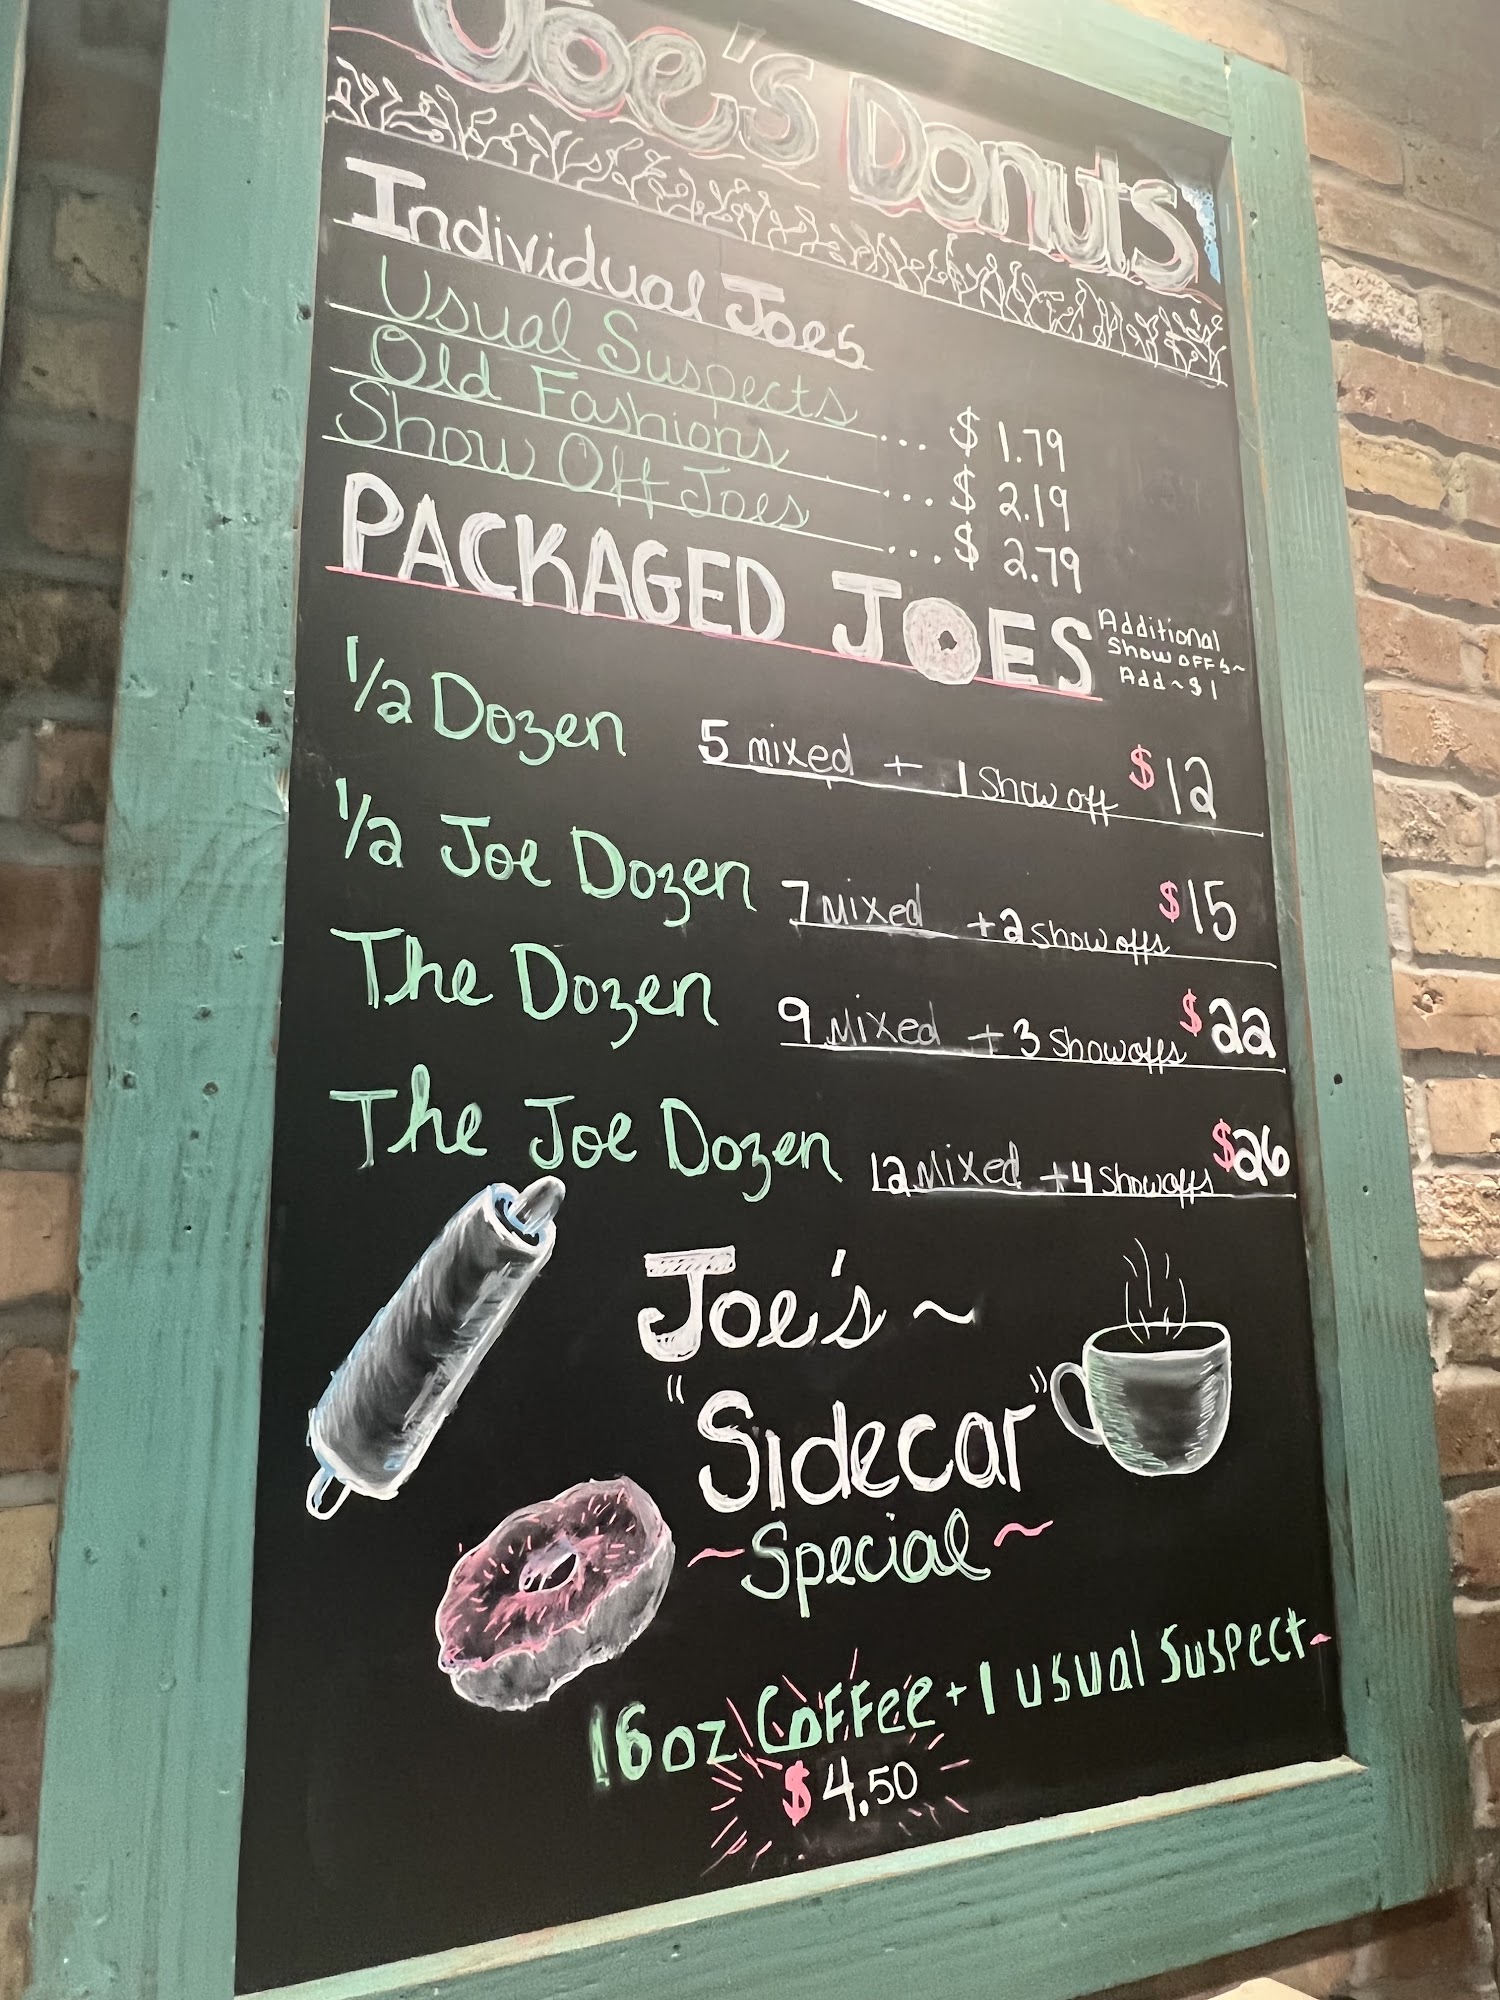 Joe's Donuts
Individual Joes
Usual Suspects ... $ 1.79
Old Fashions ... $ 2.19
Show Off Joes ... $ 2.79
PACKAGED JOES
Additional
Show OFFs~
Add ~ $1
1/2 Dozen 5 mixed + 1 Show off $12
1/2 Joe Dozen 7 Mixed +2 Show offs $15
The Dozen 9 Mixed + 3 Showoffs $22
The Joe Dozen 12 Mixed +4 Showoffs $26
Joe's ~
"Sidecar"
~Special~
16oz Coffee + 1 usual Suspect~
$4.50